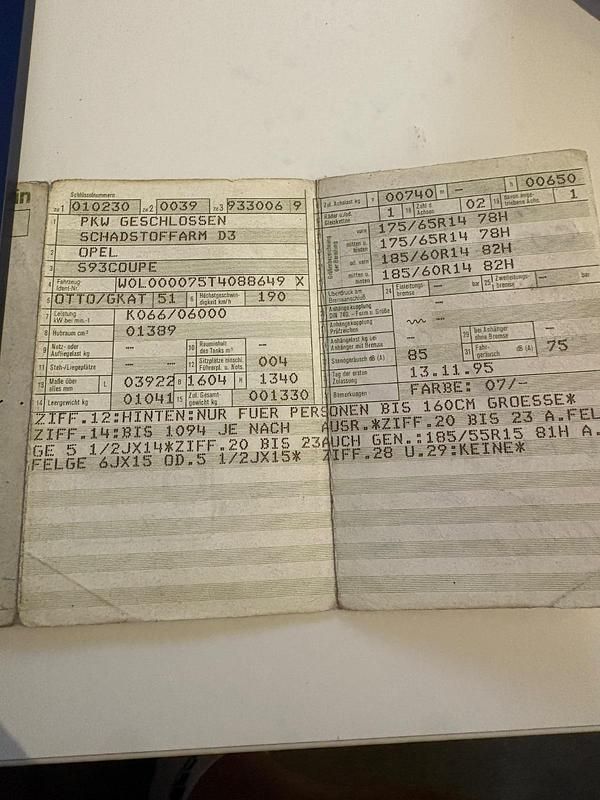 in
Schlüsselnummern
zu 1 010230 zu 2 0039 zu 3 933006 9
1 PKW GESCHLOSSEN
SCHADSTOFFARM D3
2 OPEL
3 S93COUPE
4 Fahrzeug-Ident-Nr. W0L000075T4088649 X
5 OTTO/GKAT 51 6 Höchstgeschwindigkeit km/h 190
7 Leistung kW bei min.-1 K066/06000
8 Hubraum cm³ 01389
9 Nutz- oder Aufliegelast kg — 10 Rauminhalt des Tanks m³ —
11 Steh-/Liegeplätze — 12 Sitzplätze einschl. Führerpl. u. Nots. 004
13 Maße über alles mm L 03922 B 1604 H 1340
14 Leergewicht kg 01041 15 Zul. Gesamtgewicht kg 001330
Zul. Achslast kg v 00740 m — h 00650
Räder u./od. Gleisketten 1 18 Zahl d. Achsen 02 19 davon angetriebene Achs. 1
vorn 175/65R14 78H
mitten u. hinten 175/65R14 78H
od. vorn 185/60R14 82H
mitten u. hinten 185/60R14 82H
Überdruck am Bremsanschluss 24 Einleitungsbremse — bar 25 Zweileitungsbremse — bar
Anhängekupplung DIN 740.. -Form u. Größe —
Anhängekupplung Prüfzeichen
Anhängelast kg bei Anhänger mit Bremse — 29 bei Anhänger ohne Bremse —
Standgeräusch dB (A) 85 31 Fahrgeräusch dB (A) 75
Tag der ersten Zulassung 13.11.95
Bemerkungen FARBE: 07/-
ZIFF.12:HINTEN:NUR FUER PERSONEN BIS 160CM GROESSE*
ZIFF.14:BIS 1094 JE NACH AUSR.*ZIFF.20 BIS 23 A.FEL
GE 5 1/2JX14*ZIFF.20 BIS 23AUCH GEN.:185/55R15 81H A.
FELGE 6JX15 OD.5 1/2JX15* ZIFF.28 U.29:KEINE*